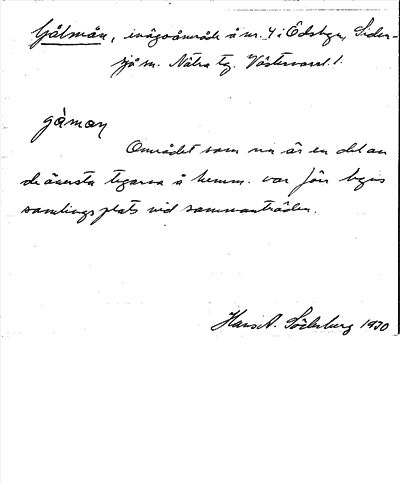 Gålmån, inägoområde å nr. 4 i Edsbyn, Sider-
sjö m. Nätra tg. Västernorrl. l.
gàmaŋ
Området som nu är en del av
de översta tegarna å hemm. var förr byns
samlingsplats vid sammanträden.
Hans A. Söderberg 1930